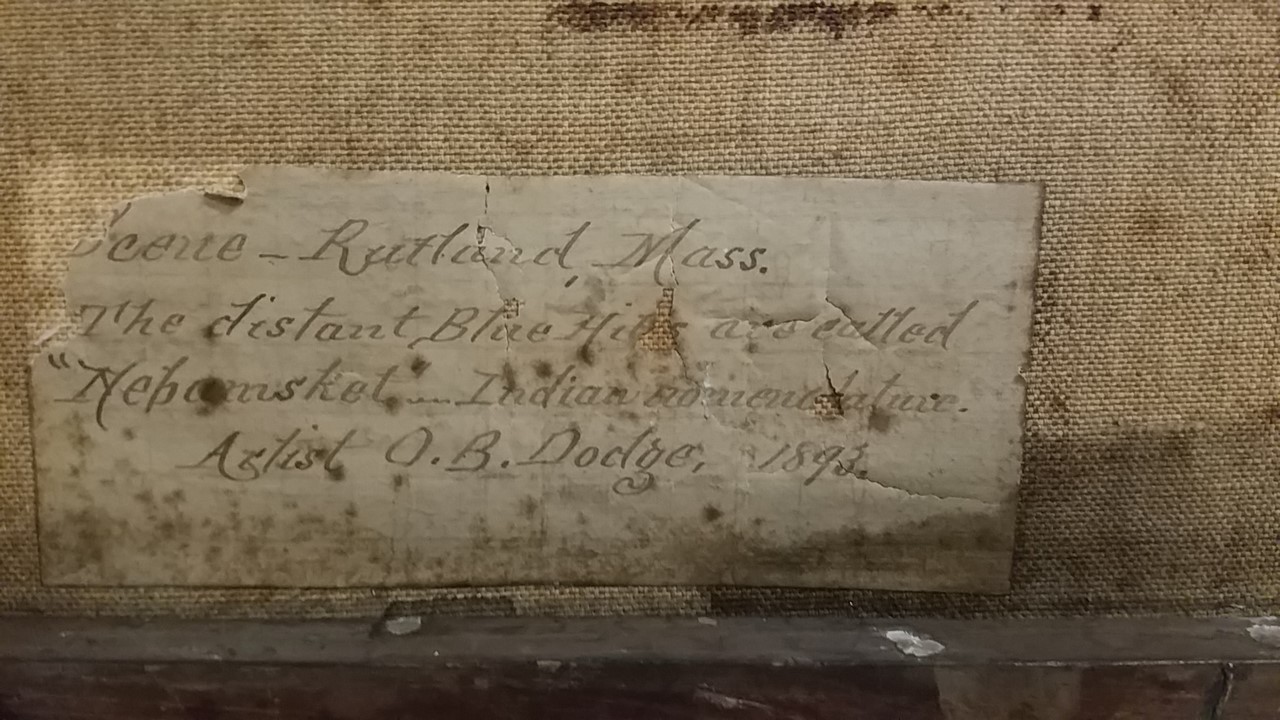 Scene – Rutland, Mass.
The distant Blue Hills are called
"Nepamsket" — Indian nomenclature.
Artist O. B. Dodge, 1893.